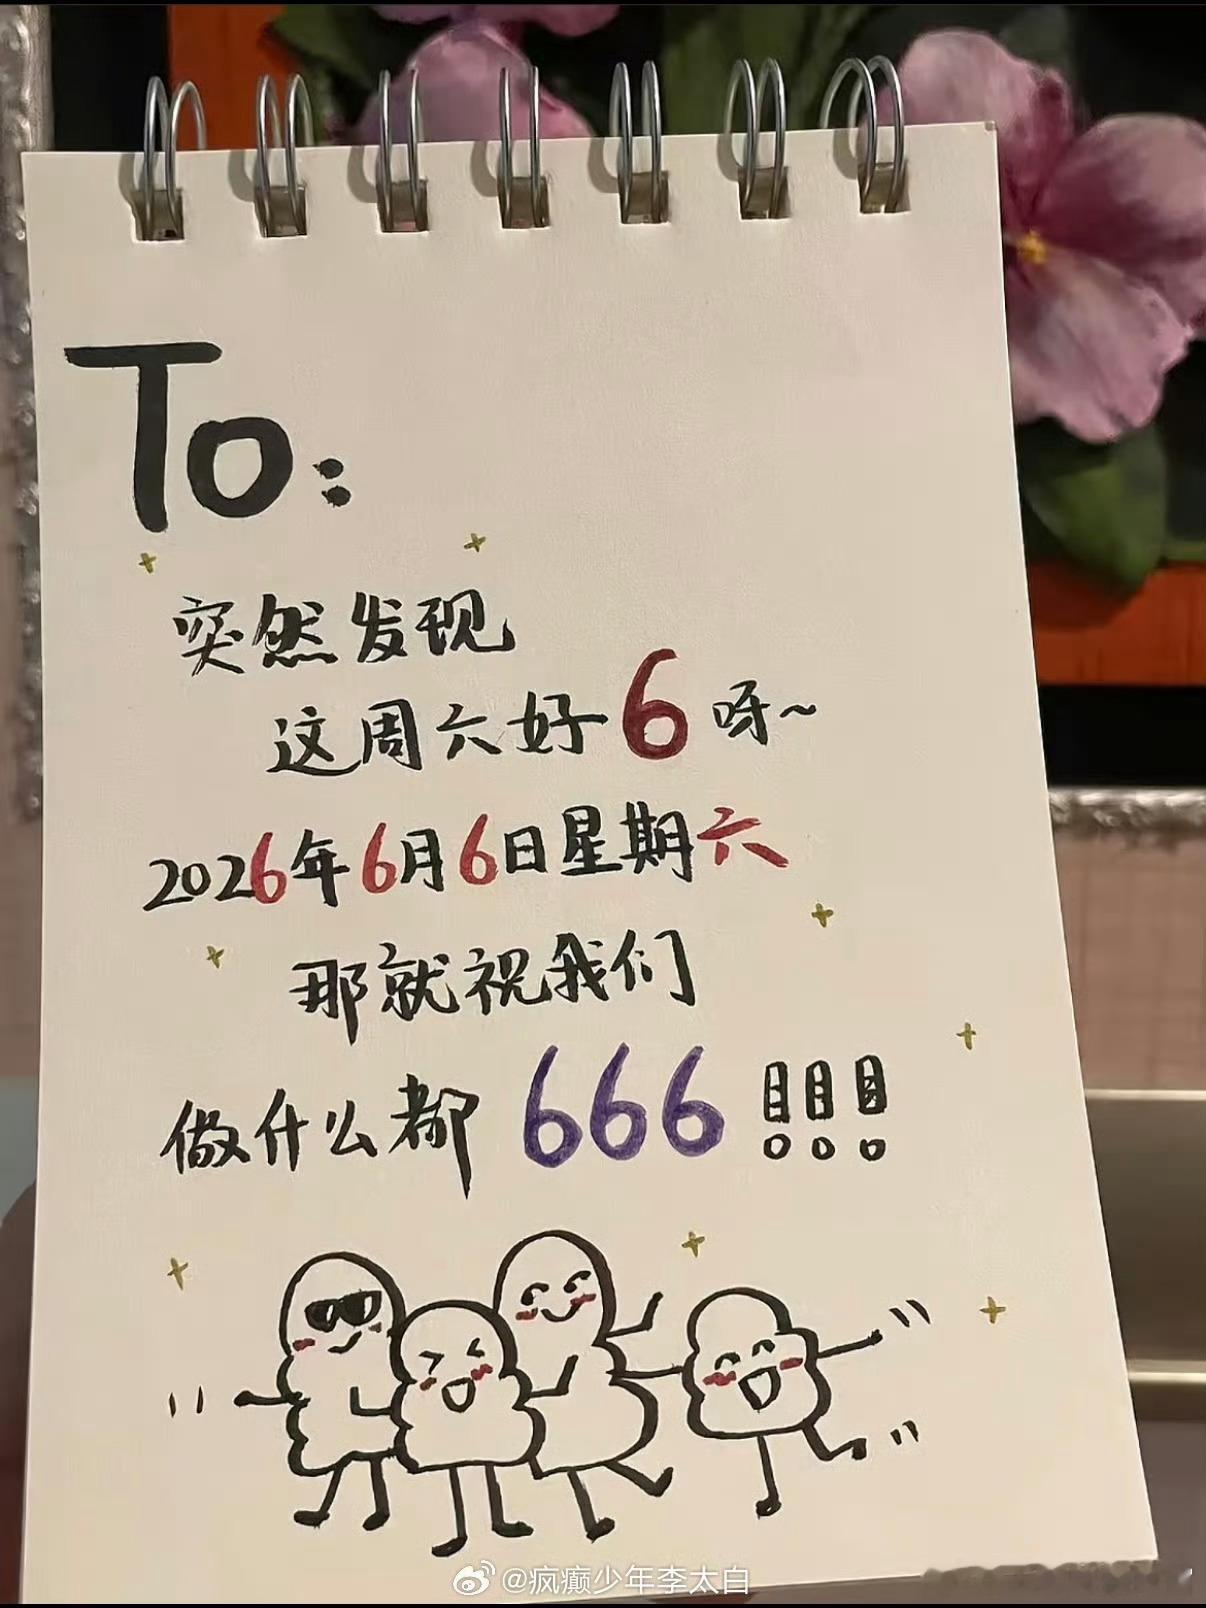 To:
突然发现
这周六好6呀~
2026年6月6日星期六
那就祝我们
做什么都666!!!
@疯癫少年李太白